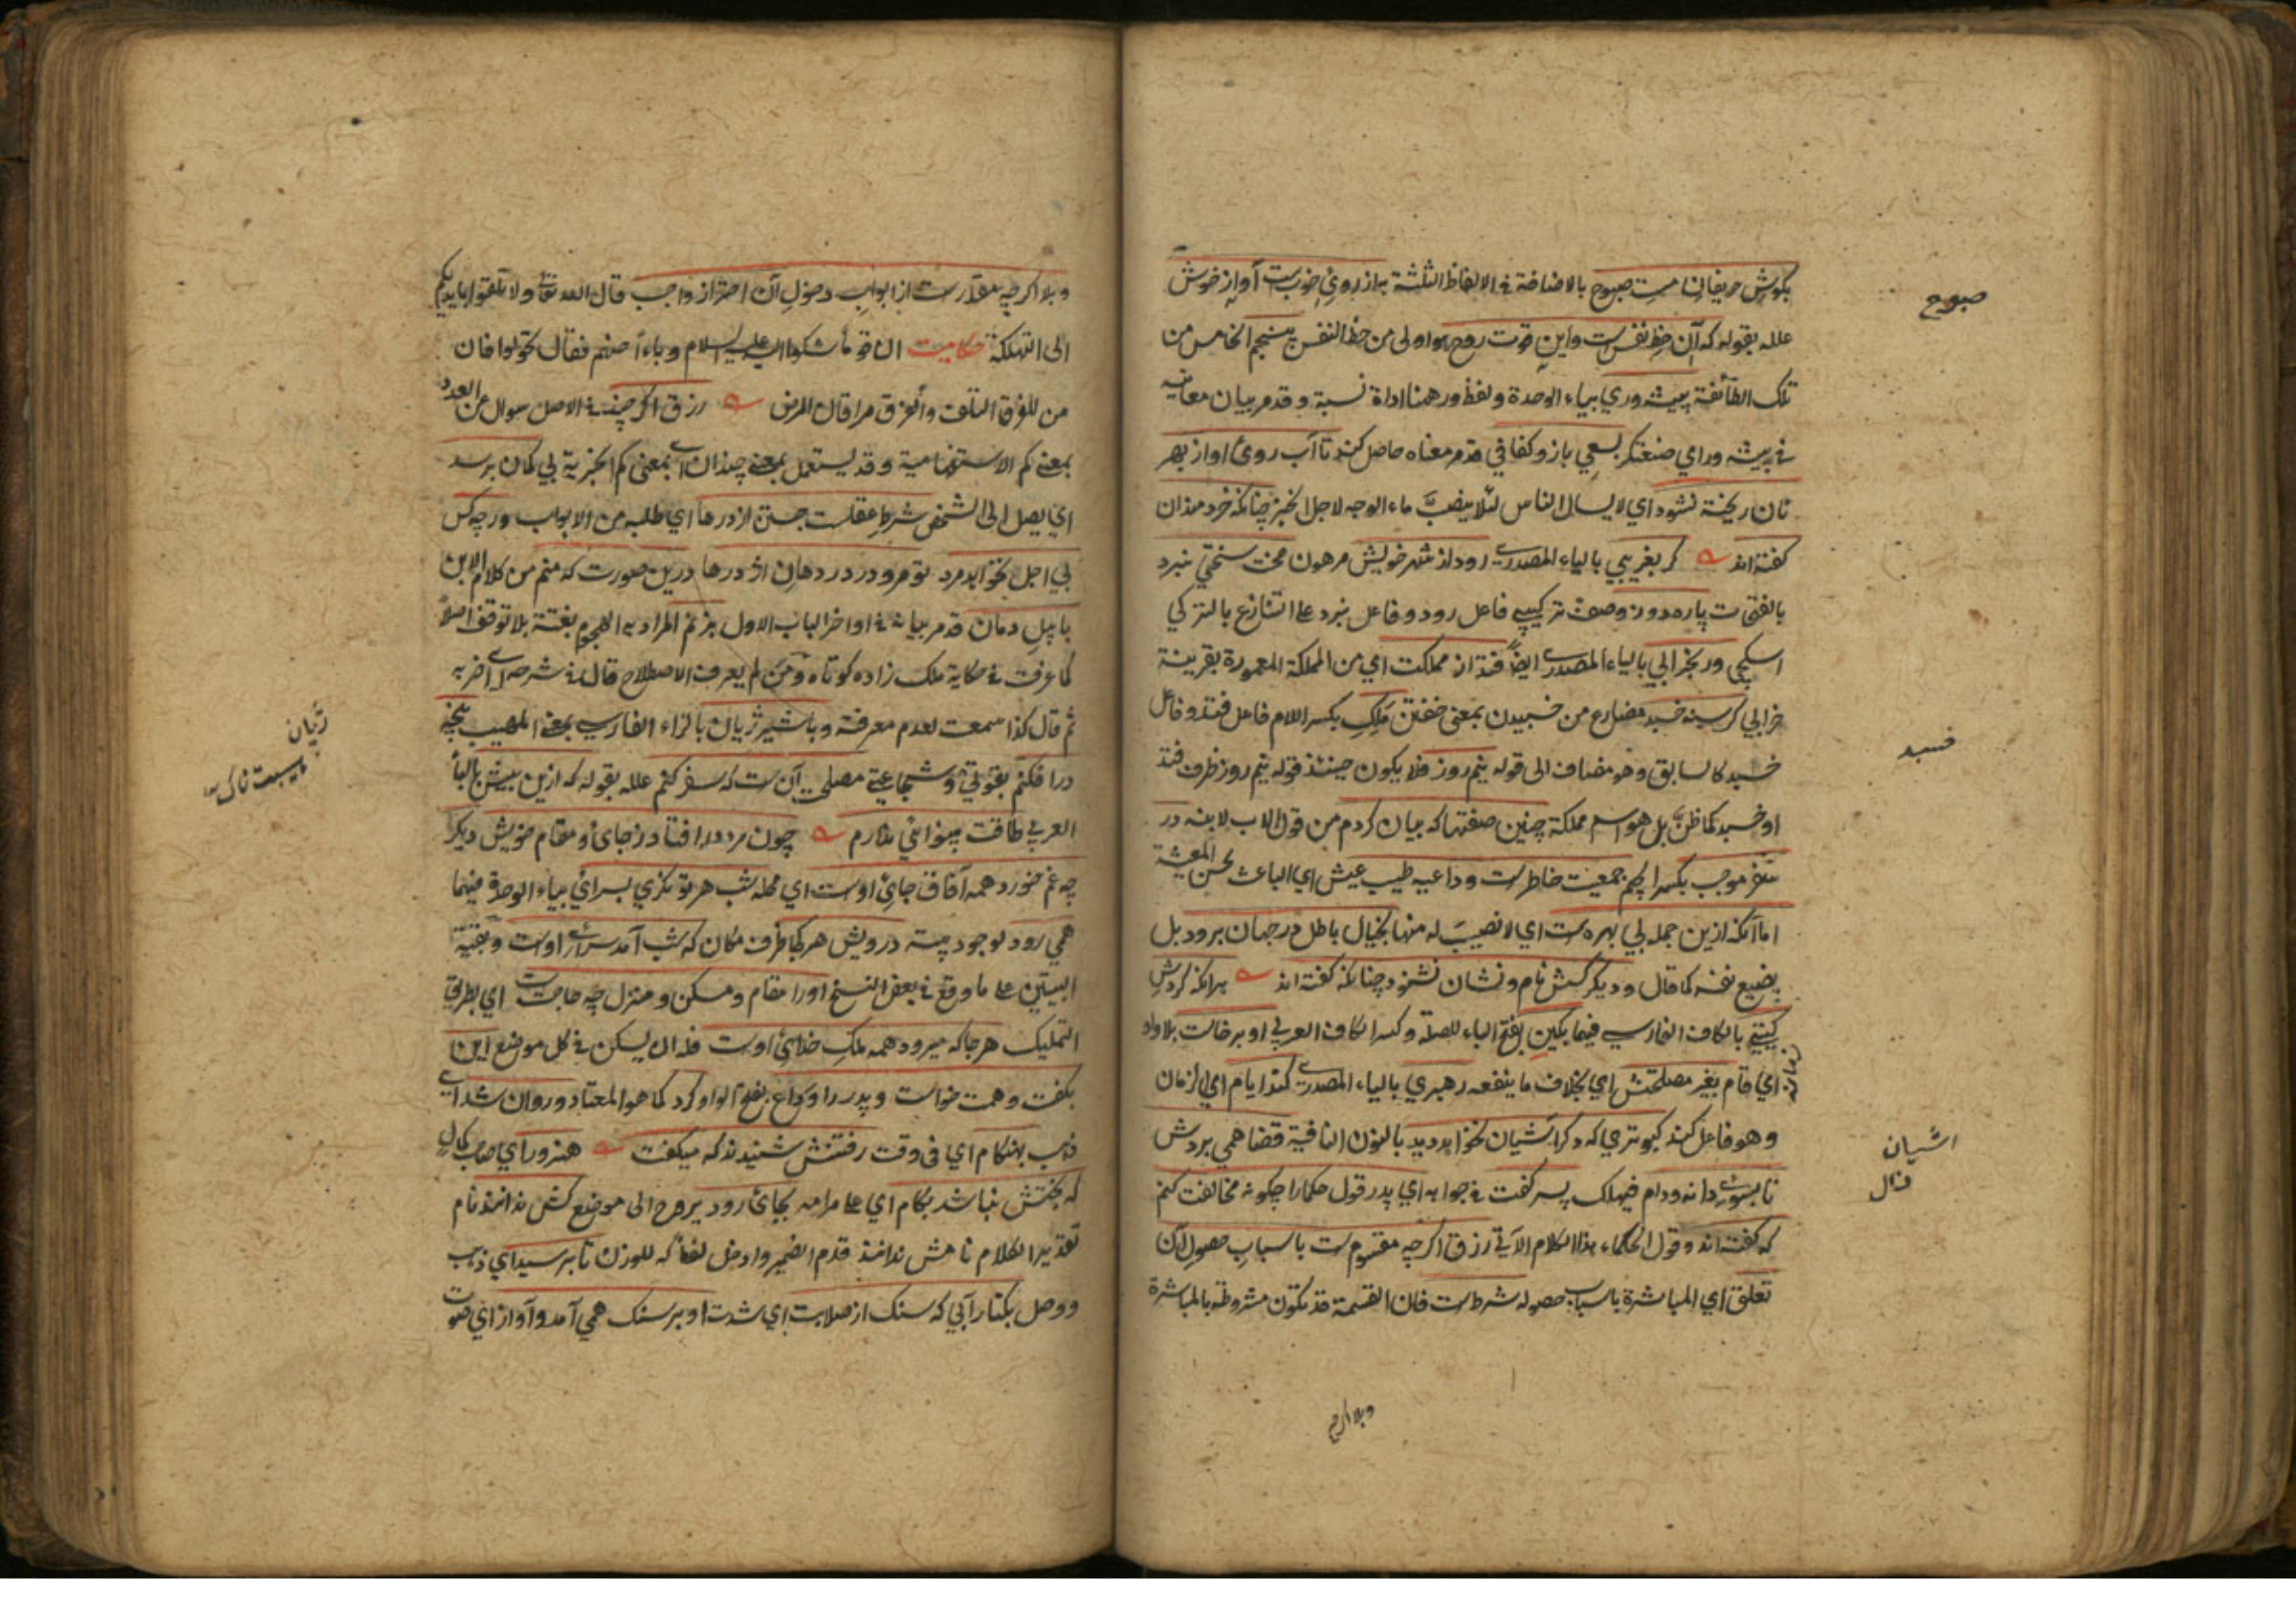 بكوش حريفان مست صبوح بالاضافة في الالفاظ الثلثة به از روي خوبست آواز خوش
علله بقوله كه آن حظ نفس است واين قوت روح هو اولى من حظ النفس پنجم الخامس من
تلك الطائفة پيشه وري بياء الوحدة ولفظ ور همنا اداة نسبة وقد مر بيان معانيه
في پيشه وراي صنعتكر بسعي بازو كفافي قد مر معناه حاصل كند تا آب روى او از بهر
نان ريخته نشود اي لا يسال الناس لئلا يصبّ ماء الوجه لاجل الخبز چنانكه خردمندان
كفته اند كر بغريبي بالياء المصدرى رود از شهر خويش مرهون محنت سختي نبرد
بالفتحات پاره دوز وصف تركيبي فاعل رود وفاعل نبرد على التنازع بالتركي
اسكيجى ور بخرابي بالياء المصدرى ايضا فتد از مملكت اي من المملكة المعمورة بقرينة
خرابي كرسنه خسبد مضارع من خسبيدن بمعنى خفتن ملك بكسر اللام فاعل فتد وفاعل
خسبد كالسابق وهو مضاف الى قوله نيم روز فلا يكون حينئذ قوله نيم روز ظرف فتد
او خسبد كما ظنّ بل هو اسم مملكة چنين صفتها كه بيان كردم من قول الاب لابنه در
سفر موجب بكسر الجيم جمعيت خاطرست وداعيه طيب عيش اي الباعث لحسن المعيشة
اما آنكه ازين جمله بي بهره ست اي لا نصيب له منها بخيال باطل در جهان برود بل
يضيع نفسه كما قال وديكر كسش نام ونشان نشنود چنانكه كفته اند هرانكه كردش
كيتي بالكاف الفارسي فيهما بكين بفتح الباء للصلة وكسر الكاف العربي او برخاست بلا واو
اي قام بغير مصلحتش اي بخلاف ما ينفعه رهبري بالياء المصدرى كند ايام اي الزمان
وهو فاعل كند كبوتري كه دكر آشيان نخواهد ديد بالنون النافية قضا همي بردش
تا بسوى دانه ودام فيهلك پسر كفت في جوابه اي پدر قول حكما را چكونه مخالفت كنم
كه كفته اند وقول الحكماء هذا الكلام الآتي رزق اكرچه مقسومست باسباب حصول آن
تعلق اي المباشرة باسباب حصوله شرطست فان القسمة قد تكون مشروطة بالمباشرة
صبوح
خسبد
اشيان
وبلا اكرچه
وبلا اكرچه مقدرست از ابواب دخول آن احتراز واجب قال الله تعالى ولا تلقوا بايديكم
الى التهلكة حكايت ان قوما شكوا اليه عليه السلام وباء ارضهم فقال تحولوا فان
من القرف التلف رزق اكر چند في الاصل سوال عن العدد
بمعنى كم الاستفهامية وقد يستعمل بمعنى چندان اى بمعنى كم الخبرية بي كمان برسد
اي يصل الى الشخص شرط عقلست جستن از درها اي طلبه من الابواب ورچه كس
بي اجل نخواهد مرد تو مرو در دهان اژدرها درين صورت كه منم من كلام الابن
با پيل دمان قد مر بيانه في اواخر الباب الاول بزنم المراد به الهجوم بغتة بلا توقف اصلا
كما عرفت في حكاية ملك زاده كوتاه ومن لم يعرف الاصطلاح قال في شرحه
ثم قال كذا سمعت لعدم معرفته وبا شير ژيان بالزاء الفارسي بمعنى المهيب پنجه
در افكنم بقوتي وشجاعتي مصلحت آن ست كه سفر كنم علله بقوله كه ازين بيش بالباء
العربي طاقت بينوائي ندارم چون مرد در افتاد ز جاى ومقام خويش ديكر
چه غم خورد همه آفاق جاي اوست اي محله شب هر توانكري بسرائي بياء الوحدة فيهما
همي رود درويش هر كجا ظرف مكان كه شب آمد سراى اوست وبقية
البيتين على ما وقع في بعض النسخ اورا مقام ومسكن ومنزل چه حاجت است اي بطريق
التمليك هر جا كه ميرود همه ملك خداي اوست فله ان يسكن في كل موضع اين
بكفت وهمت خواست وپدر را وداع بفتح الواو كرد كما هو المعتاد وروان شد اى
ذهب بهنكام اي في وقت رفتنش شنيدند كه ميكفت هنرور اي صاحب كمال
كه بختش نباشد بكام اي على مرامه بجائى رود يروح الى موضع كش ندانند نام
تقدير الكلام نامش ندانند قدم الضمير وادخل لفظ كه للوزن تا برسيد اي ذهب
ووصل بكنار آبي كه سنك از صلابت اي شدت او بر سنك همي آمد وآواز اي صوت
ژيان
هيبت ناك